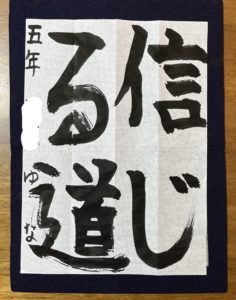 信じ
る道
五年 ゆな